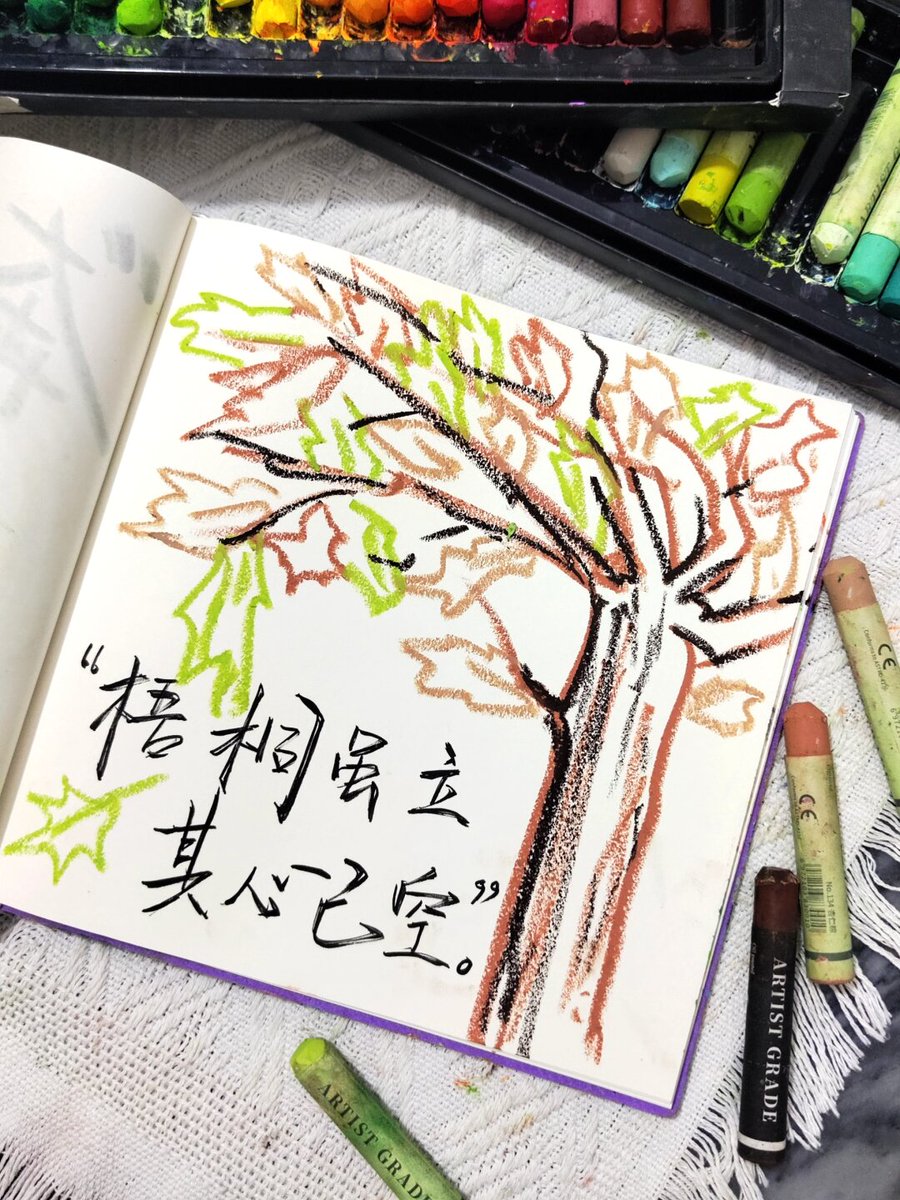 “梧桐虽立
其心已空”。
ARTIST GRADE
ARTIST GRADE
No.134 杏仁棕
CE
CE